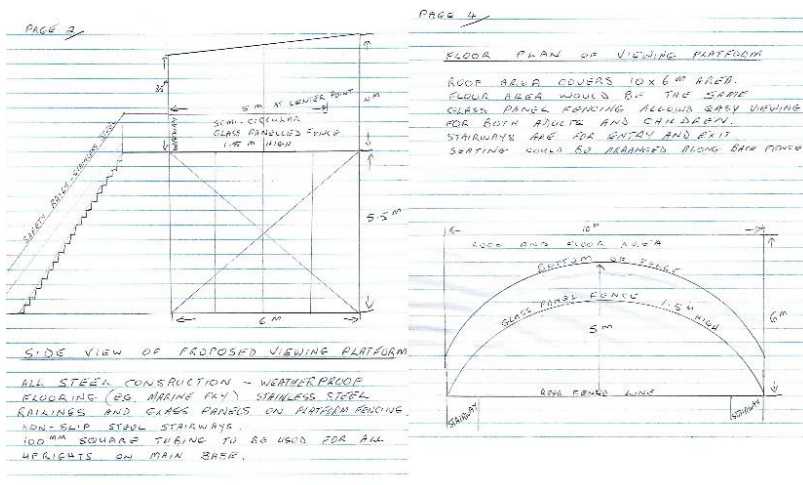 PAGE 2
3.5M
5 M AT CENTER POINT
SEMI-CIRCULAR
GLASS PANELLED FENCE
1.5 M HIGH
4M
SAFETY RAILS - STAINLESS STEEL
5.5 M
6 M
SIDE VIEW OF PROPOSED VIEWING PLATFORM
ALL STEEL CONSRUCTION - WEATHERPROOF
FLOORING (EG. MARINE PLY) STAINLESS STEEL
RAILINGS AND GLASS PANELS ON PLATFORM FENCING
NON-SLIP STEEL STAIRWAYS.
100 MM SQUARE TUBING TO BE USED FOR ALL
UPRIGHTS ON MAIN BASE.
PAGE 4
FLOOR PLAN OF VIEWING PLATFORM
ROOF AREA COVERS 10 x 6 M AREA.
FLOUR AREA WOULD BE THE SAME
GLASS PANEL FENCING ALLOWS EASY VIEWING
FOR BOTH ADULTS AND CHILDREN.
STAIRWAYS ARE FOR ENTRY AND EXIT
SEATING COULD BE ARRANGED ALONG BACK FENCE
10M
ROOF AND FLOOR AREA
BOTTOM OF FENCE
GLASS PANEL FENCE 1.5 M HIGH
5 M
6 M
REAR FENCE LINE
STAIRWAY
STAIRWAY